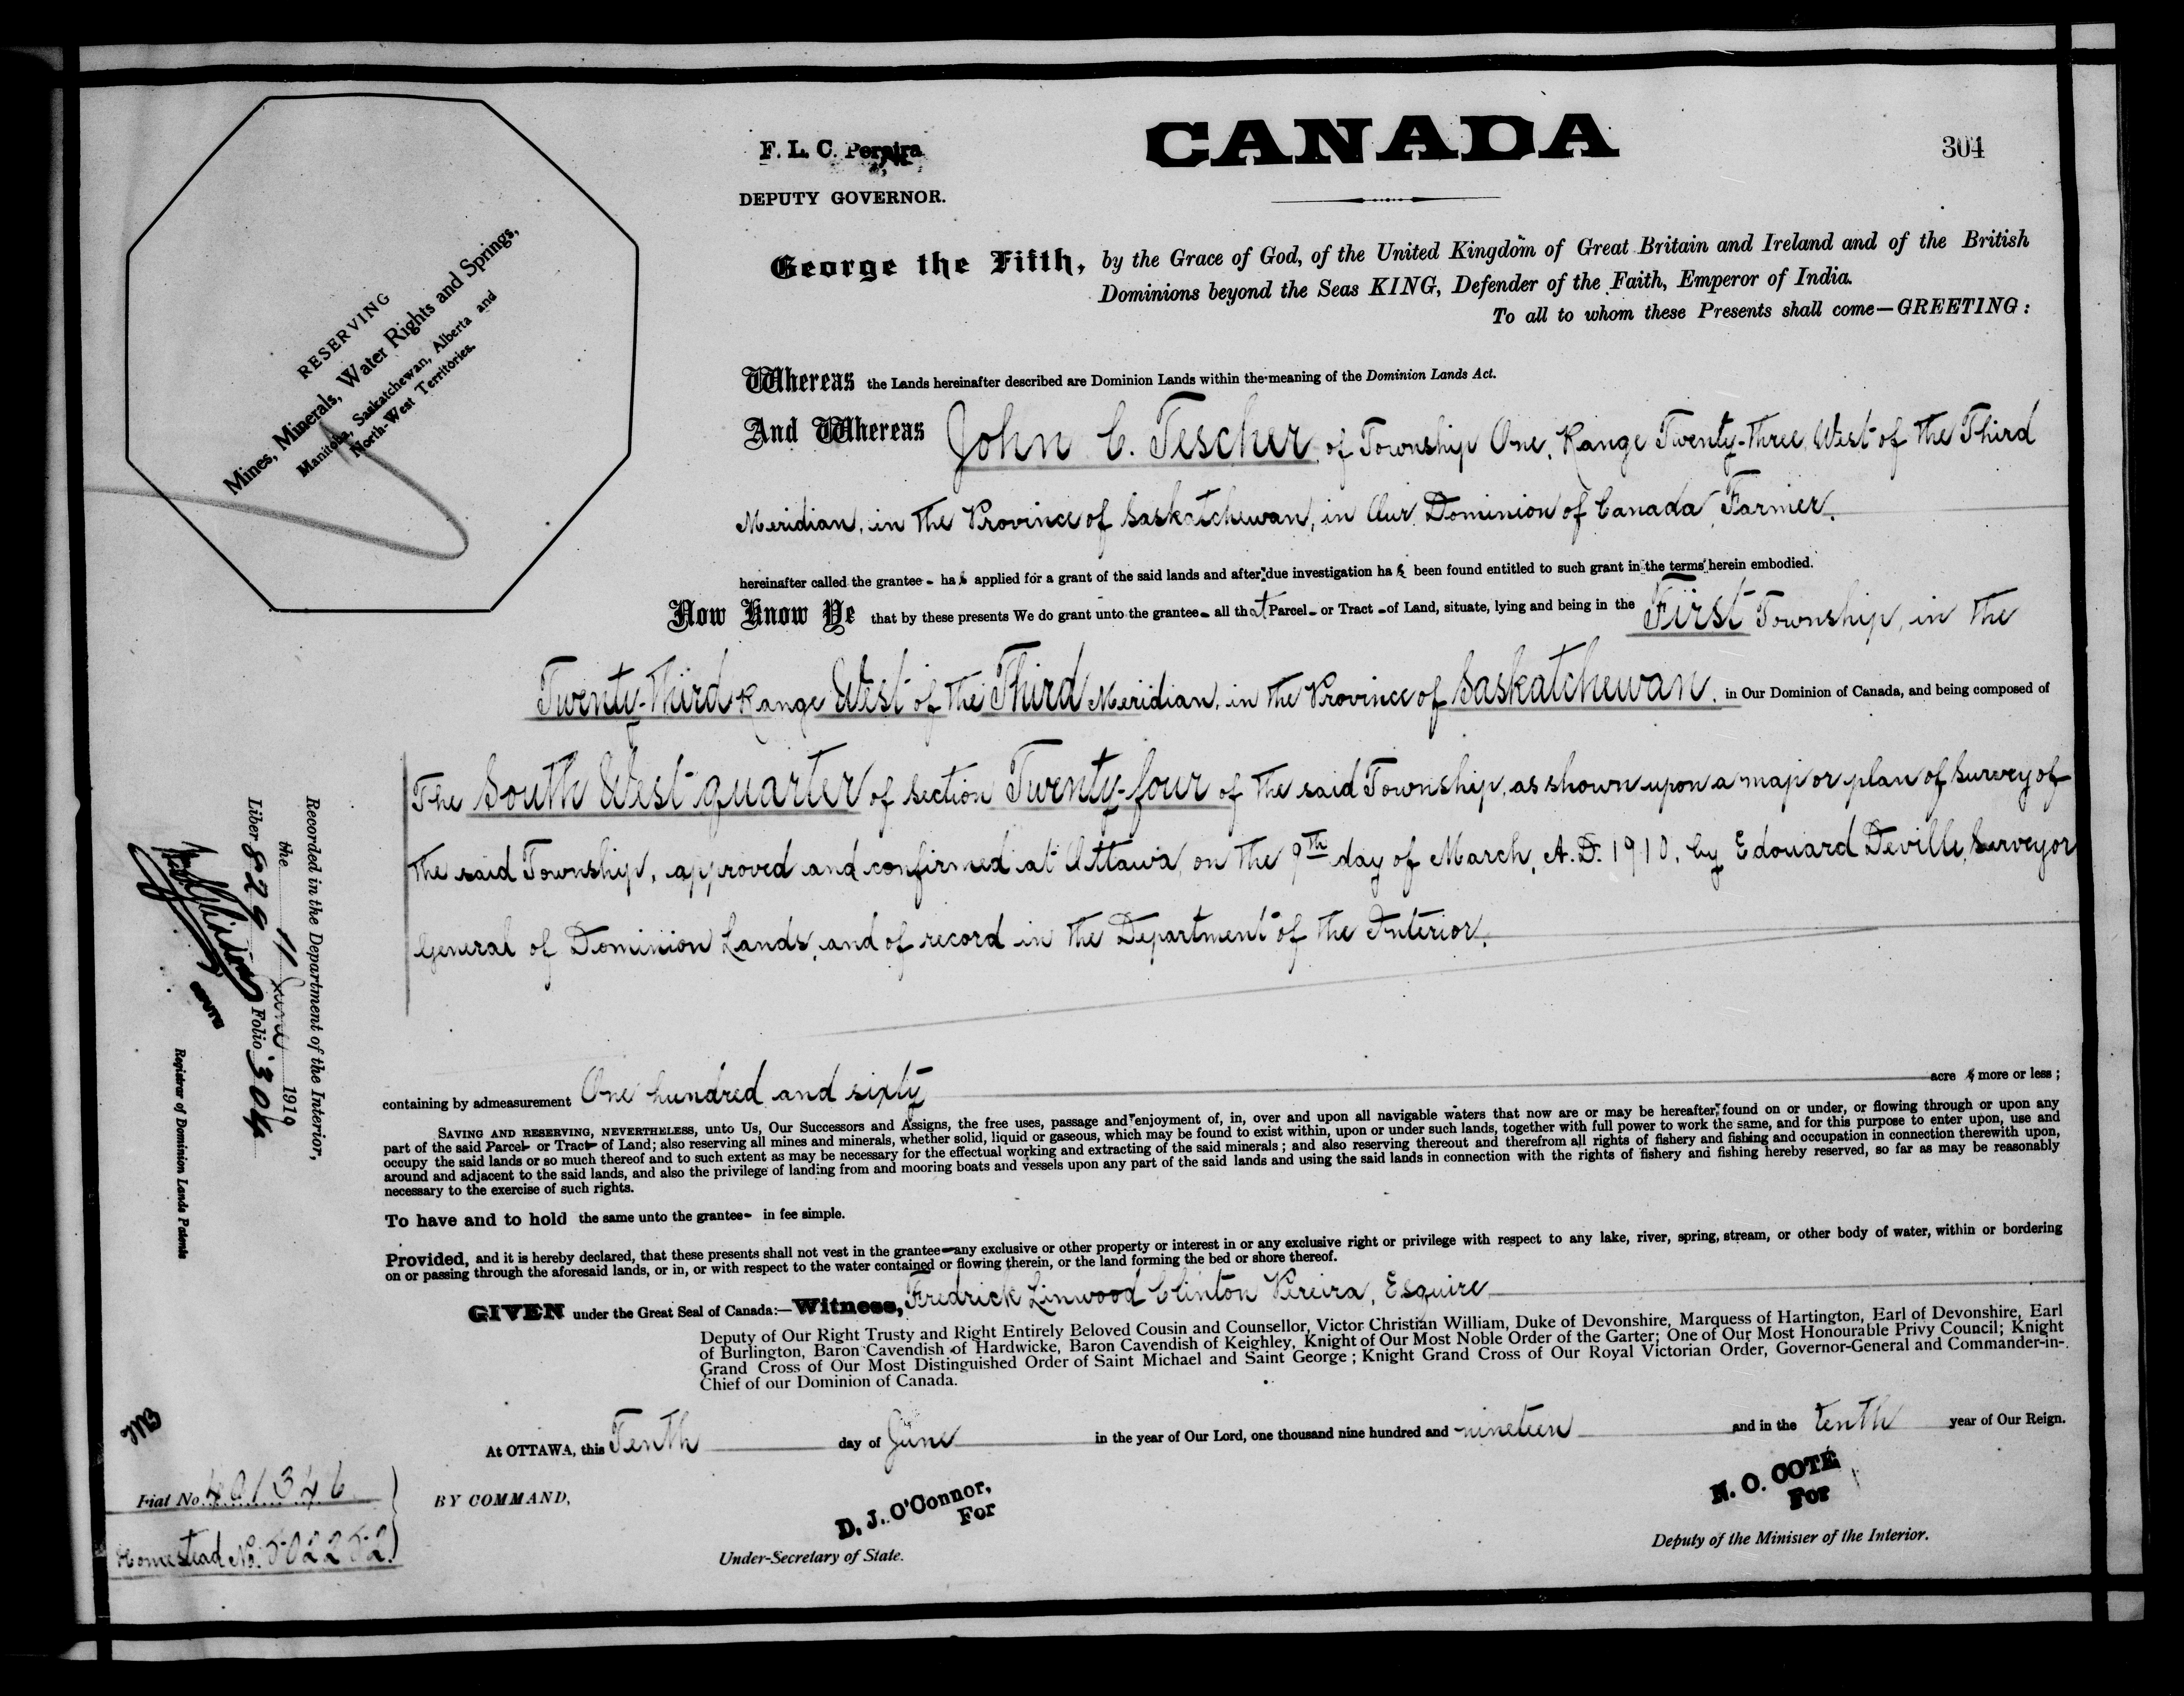 CANADA
304
F. L. C. Pereira
DEPUTY GOVERNOR.
RESERVING
Mines, Minerals, Water Rights and Springs,
Manitoba, Saskatchewan, Alberta and
North-West Territories.
George the Fifth, by the Grace of God, of the United Kingdom of Great Britain and Ireland and of the British
Dominions beyond the Seas KING, Defender of the Faith, Emperor of India.
To all to whom these Presents shall come—GREETING:
Whereas the Lands hereinafter described are Dominion Lands within the meaning of the Dominion Lands Act.
And Whereas John C. Tescher of Township One, Range Twenty-three West of the Third
Meridian, in the Province of Saskatchewan, in Our Dominion of Canada, Farmer,
hereinafter called the grantee - has applied for a grant of the said lands and after due investigation has been found entitled to such grant in the terms herein embodied.
Now Know Ye that by these presents We do grant unto the grantee - all that Parcel - or Tract - of Land, situate, lying and being in the First Township, in the
Twenty-third Range West of the Third Meridian, in the Province of Saskatchewan, in Our Dominion of Canada, and being composed of
The South West quarter of section Twenty-four of the said Township, as shown upon a map or plan of survey of
the said Township, approved and confirmed at Ottawa, on the 9th day of March, A.D. 1910, by Edouard Deville, Surveyor
General of Dominion Lands, and of record in the Department of the Interior.
containing by admeasurement One hundred and sixty acres more or less;
SAVING AND RESERVING, NEVERTHELESS, unto Us, Our Successors and Assigns, the free uses, passage and enjoyment of, in, over and upon all navigable waters that now are or may be hereafter found on or under, or flowing through or upon any
part of the said Parcel- or Tract- of Land; also reserving all mines and minerals, whether solid, liquid or gaseous, which may be found to exist within, upon or under such lands, together with full power to work the same, and for this purpose to enter upon, use and
occupy the said lands or so much thereof and to such extent as may be necessary for the effectual working and extracting of the said minerals; and also reserving thereout and therefrom all rights of fishery and fishing and occupation in connection therewith upon,
around and adjacent to the said lands, and also the privilege of landing from and mooring boats and vessels upon any part of the said lands and using the said lands in connection with the rights of fishery and fishing hereby reserved, so far as may be reasonably
necessary to the exercise of such rights.
To have and to hold the same unto the grantee- in fee simple.
Provided, and it is hereby declared, that these presents shall not vest in the grantee- any exclusive or other property or interest in or any exclusive right or privilege with respect to any lake, river, spring, stream, or other body of water, within or bordering
on or passing through the aforesaid lands, or in, or with respect to the water contained or flowing therein, or the land forming the bed or shore thereof.
GIVEN under the Great Seal of Canada:—Witness, Fredrick Linwood Clinton Pereira, Esquire
Deputy of Our Right Trusty and Right Entirely Beloved Cousin and Counsellor, Victor Christian William, Duke of Devonshire, Marquess of Hartington, Earl of Devonshire, Earl
of Burlington, Baron Cavendish of Hardwicke, Baron Cavendish of Keighley, Knight of Our Most Noble Order of the Garter; One of Our Most Honourable Privy Council; Knight
Grand Cross of Our Most Distinguished Order of Saint Michael and Saint George; Knight Grand Cross of Our Royal Victorian Order, Governor-General and Commander-in-
Chief of our Dominion of Canada.
At OTTAWA, this Tenth day of June in the year of Our Lord, one thousand nine hundred and nineteen and in the tenth year of Our Reign.
BY COMMAND,
D. J. O'Connor,
For
Under-Secretary of State.
N. O. COTÉ
For
Deputy of the Minister of the Interior.
Recorded in the Department of the Interior,
the 11 June 1919
Liber 829 Folio 304
Registrar of Dominion Lands Patents
Fiat No. 401346
Homestead No. 502252